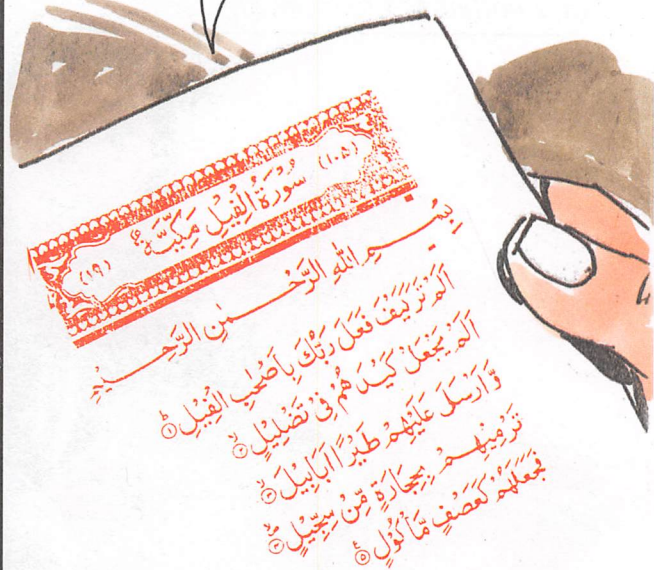 (١٩) سُوْرَةُ الْفِيْلِ مَكِّيَّةٌ (١٠٥)
بِسْمِ اللهِ الرَّحْمٰنِ الرَّحِيْمِ
اَلَمْ تَرَ كَيْفَ فَعَلَ رَبُّكَ بِاَصْحٰبِ الْفِيْلِ ۱
اَلَمْ يَجْعَلْ كَيْدَهُمْ فِيْ تَضْلِيْلٍ ۲
وَّ اَرْسَلَ عَلَيْهِمْ طَيْرًا اَبَابِيْلَ ۳
تَرْمِيْهِمْ بِحِجَارَةٍ مِّنْ سِجِّيْلٍ ۴
فَجَعَلَهُمْ كَعَصْفٍ مَّاْكُوْلٍ ۵